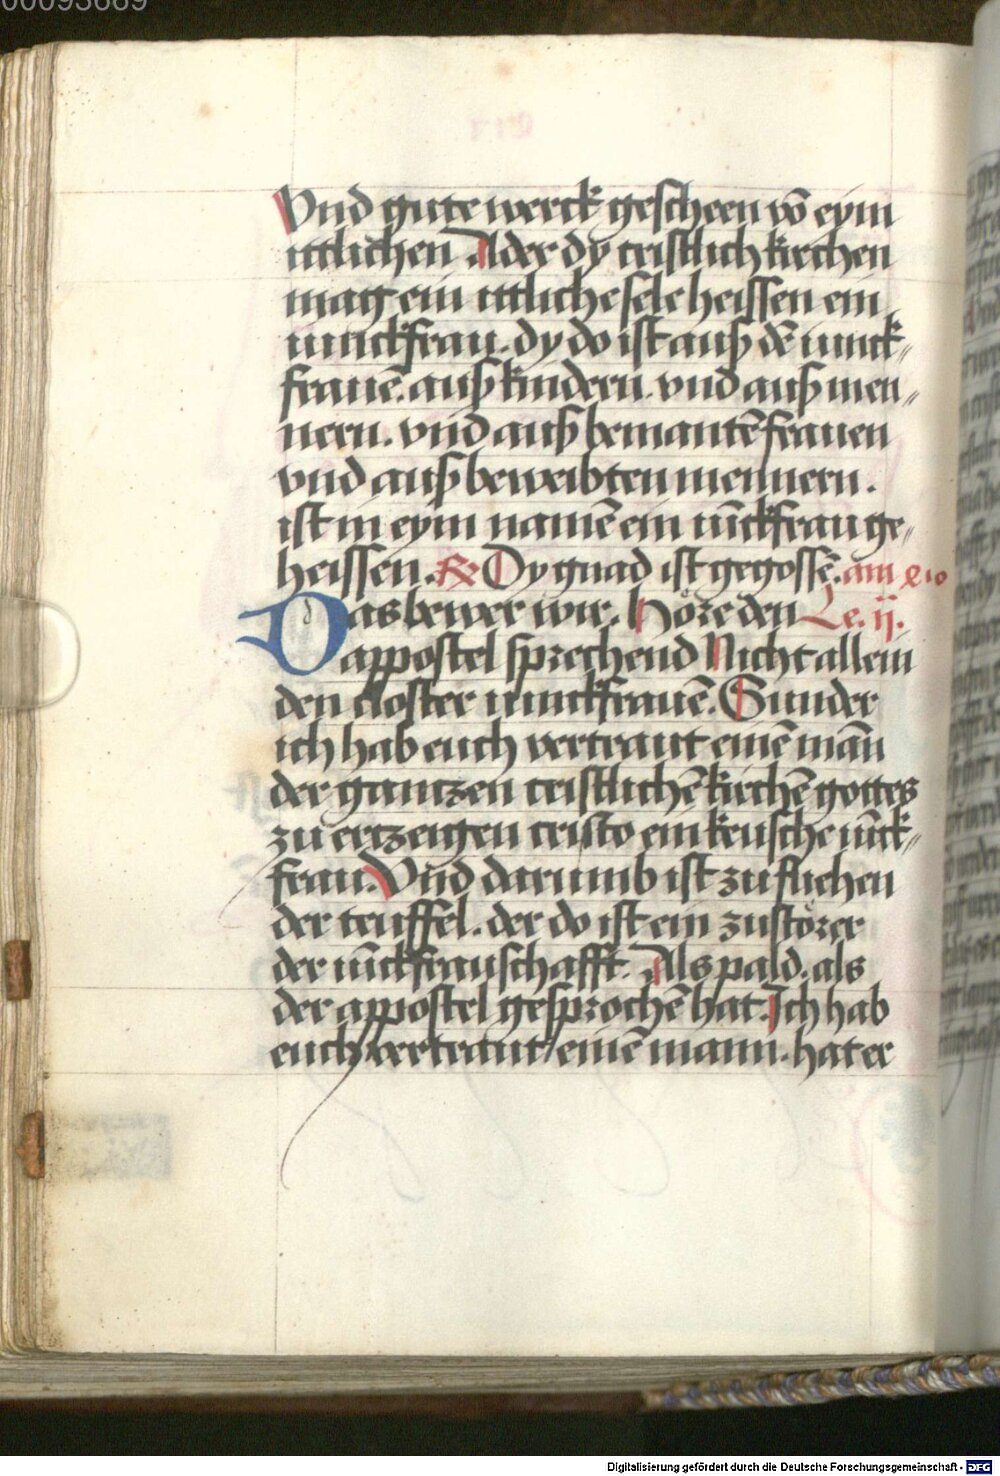 Vnd gute werck gescheen vō eym
ittlichen Ader dy cristlich kirchen
mag ein ittliche sele heissen ein
iunckfrau. dy do ist auß dē iunck-
frauē. auß kindern. vnd auß men-
nern. vnd auß bemantē frauen
vnd auß beweibten mennern.
ist in eym namē ein iūckfrau ge-
heissen. R Dy gnad ist gegossē. am
Das bewer wir. Höre den Le. ij.
appostel sprechend Nicht allein
den closter iunckfrauē. Sunder
ich hab euch vertraut einē mān
der gantzen cristlichē kirchē gottes
zu ertzeigen cristo ein keusche iūck-
frau. Vnd darumb ist zu fliehen
der teuffel. der do ist ein zustörer
der iūckfrauschafft. Als pald. als
der appostel gesprochē hat. Ich hab
euch vertraut einē mann. hat er
Digitalisierung gefördert durch die Deutsche Forschungsgemeinschaft - DFG